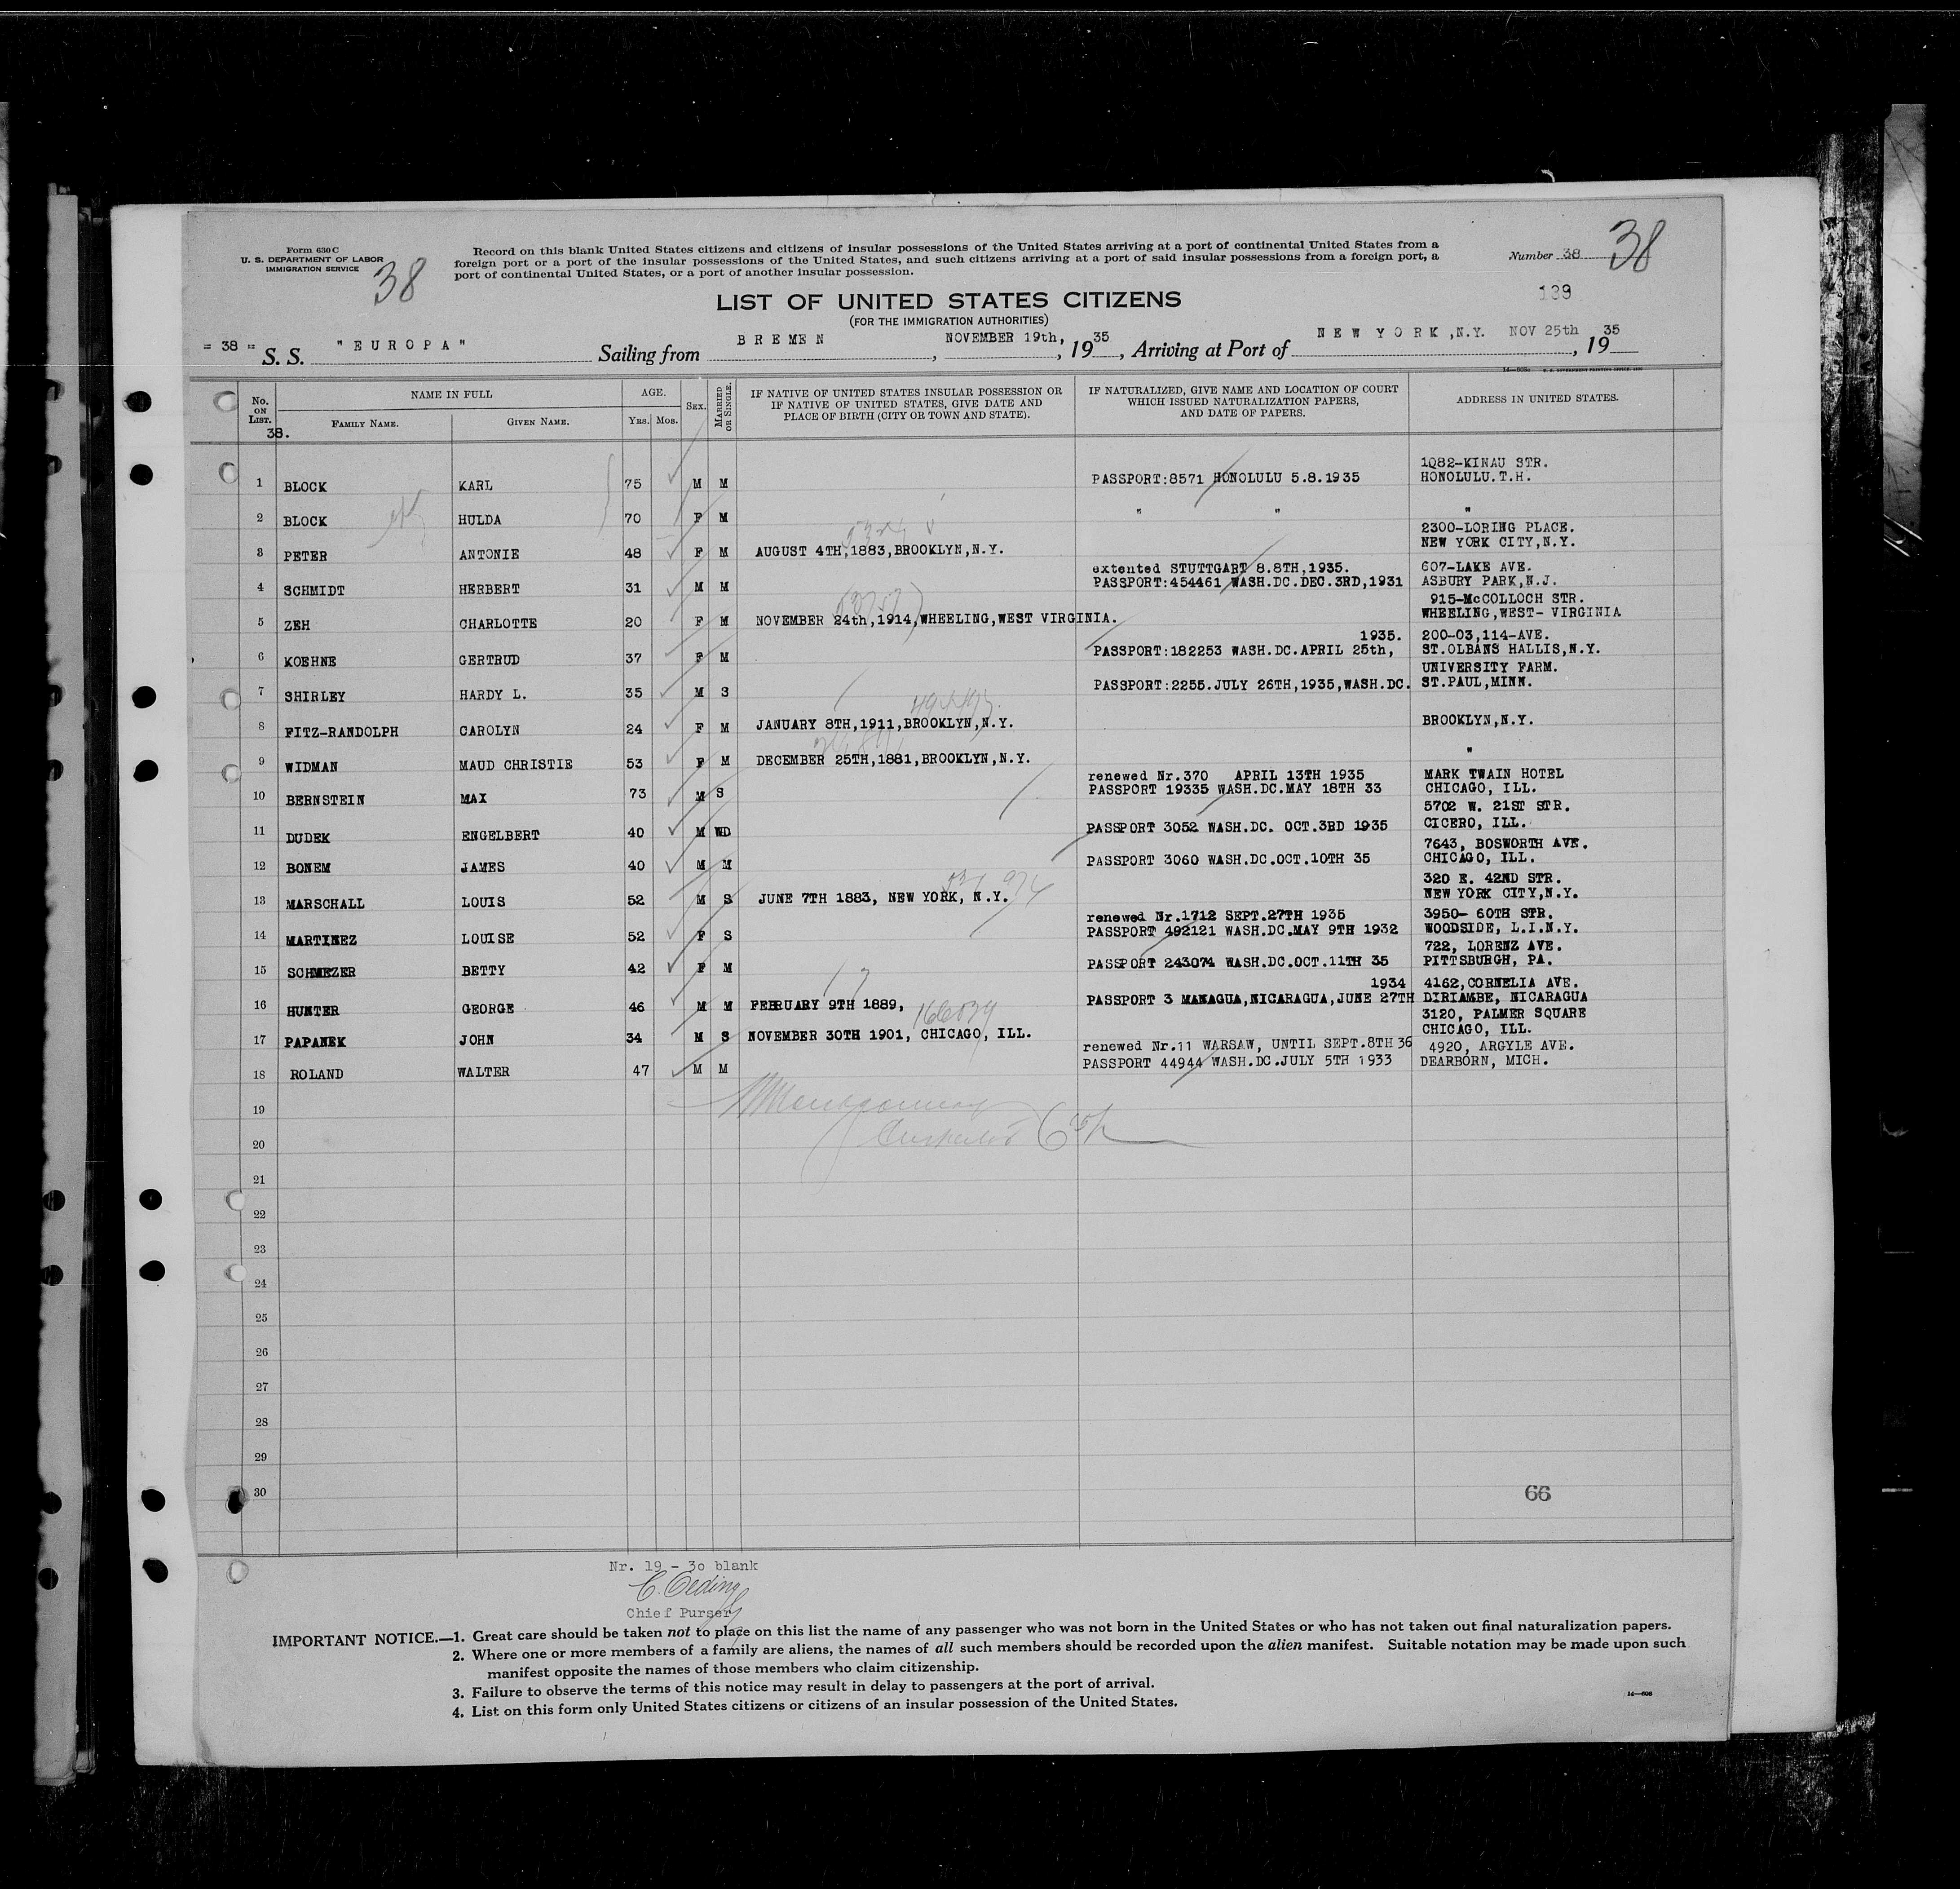 Form 630 C
U. S. DEPARTMENT OF LABOR
IMMIGRATION SERVICE
38
Record on this blank United States citizens and citizens of insular possessions of the United States arriving at a port of continental United States from a
foreign port or a port of the insular possessions of the United States, and such citizens arriving at a port of said insular possessions from a foreign port, a
port of continental United States, or a port of another insular possession.
Number 38
38
139
LIST OF UNITED STATES CITIZENS
(FOR THE IMMIGRATION AUTHORITIES)
= 38 = S. S. "EUROPA" Sailing from BREMEN, NOVEMBER 19th, 1935, Arriving at Port of NEW YORK, N.Y. NOV 25th, 1935
No. ON LIST. NAME IN FULL AGE. SEX. MARRIED OR SINGLE. IF NATIVE OF UNITED STATES INSULAR POSSESSION OR IF NATIVE OF UNITED STATES, GIVE DATE AND PLACE OF BIRTH (CITY OR TOWN AND STATE). IF NATURALIZED, GIVE NAME AND LOCATION OF COURT WHICH ISSUED NATURALIZATION PAPERS, AND DATE OF PAPERS. ADDRESS IN UNITED STATES.
FAMILY NAME. GIVEN NAME. YRS. MOS.
38.
1082-KINAU STR.
1 BLOCK KARL 75 M M PASSPORT:8571 HONOLULU 5.8.1935 HONOLULU.T.H.
2 BLOCK HULDA 70 F M " " "
2300-LORING PLACE.
3 PETER ANTONIE 48 F M AUGUST 4TH,1883,BROOKLYN,N.Y. NEW YORK CITY,N.Y.
extented STUTTGART 8.8TH,1935. 607-LAKE AVE.
4 SCHMIDT HERBERT 31 M M PASSPORT:454461 WASH.DC.DEC.3RD,1931 ASBURY PARK,N.J.
915-McCOLLOCH STR.
5 ZEH CHARLOTTE 20 F M NOVEMBER 24th,1914,WHEELING,WEST VIRGINIA. WHEELING,WEST- VIRGINIA
1935. 200-03,114-AVE.
6 KOEHNE GERTRUD 37 F M PASSPORT:182253 WASH.DC.APRIL 25th, ST.OLBANS HALLIS,N.Y.
UNIVERSITY FARM.
7 SHIRLEY HARDY L. 35 M S PASSPORT:2255.JULY 26TH,1935,WASH.DC. ST.PAUL,MINN.
8 FITZ-RANDOLPH CAROLYN 24 F M JANUARY 8TH,1911,BROOKLYN,N.Y. BROOKLYN,N.Y.
9 WIDMAN MAUD CHRISTIE 53 F M DECEMBER 25TH,1881,BROOKLYN,N.Y. "
renewed Nr.370 APRIL 13TH 1935 MARK TWAIN HOTEL
10 BERNSTEIN MAX 73 M S PASSPORT 19335 WASH.DC.MAY 18TH 33 CHICAGO, ILL.
5702 W. 21ST STR.
11 DUDEK ENGELBERT 40 M WD PASSPORT 3052 WASH.DC. OCT.3RD 1935 CICERO, ILL.
7643, BOSWORTH AVE.
12 BONEM JAMES 40 M M PASSPORT 3060 WASH.DC.OCT.10TH 35 CHICAGO, ILL.
320 E. 42ND STR.
13 MARSCHALL LOUIS 52 M S JUNE 7TH 1883, NEW YORK, N.Y. NEW YORK CITY,N.Y.
renewed Nr.1712 SEPT.27TH 1935 3950- 60TH STR.
14 MARTINEZ LOUISE 52 F S PASSPORT 492121 WASH.DC.MAY 9TH 1932 WOODSIDE, L.I.N.Y.
722, LORENZ AVE.
15 SCHMEZER BETTY 42 F M PASSPORT 243074 WASH.DC.OCT.11TH 35 PITTSBURGH, PA.
1934 4162,CORNELIA AVE.
16 HUNTER GEORGE 46 M M FEBRUARY 9TH 1889, PASSPORT 3 MANAGUA,NICARAGUA,JUNE 27TH DIRIAMBE, NICARAGUA
3120, PALMER SQUARE
17 PAPANEK JOHN 34 M S NOVEMBER 30TH 1901, CHICAGO, ILL. CHICAGO, ILL.
renewed Nr.11 WARSAW, UNTIL SEPT.8TH 36 4920, ARGYLE AVE.
18 ROLAND WALTER 47 M M PASSPORT 44944 WASH.DC.JULY 5TH 1933 DEARBORN, MICH.
19
20
21
22
23
24
25
26
27
28
29
30
66
Nr. 19 - 30 blank
C. Oeding
Chief Purser
IMPORTANT NOTICE.—1. Great care should be taken not to place on this list the name of any passenger who was not born in the United States or who has not taken out final naturalization papers.
2. Where one or more members of a family are aliens, the names of all such members should be recorded upon the alien manifest. Suitable notation may be made upon such
manifest opposite the names of those members who claim citizenship.
3. Failure to observe the terms of this notice may result in delay to passengers at the port of arrival.
4. List on this form only United States citizens or citizens of an insular possession of the United States.
14—606